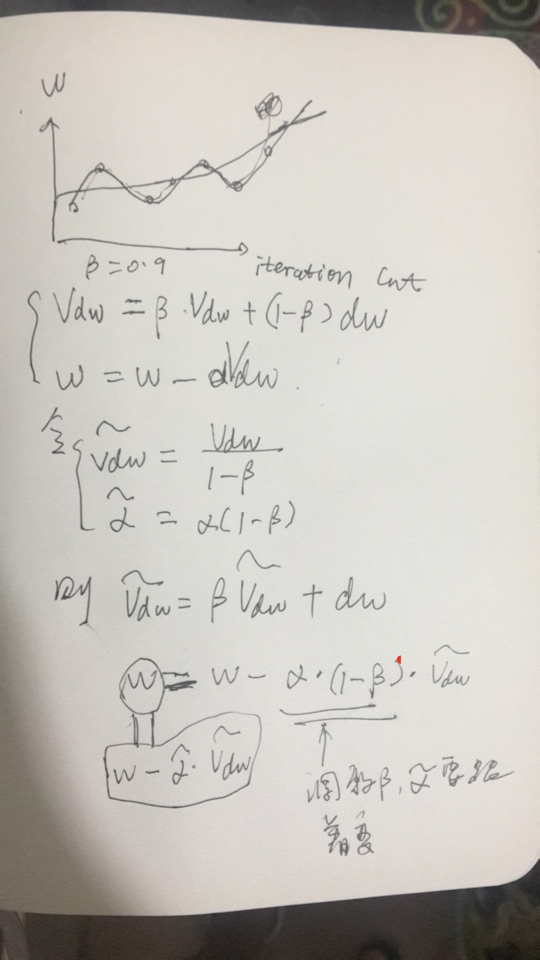 W
β = 0.9
iteration Cnt
Vdw = β·Vdw + (1-β) dw
w = w - αVdw.
令
Ṽdw = Vdw / 1-β
α̃ = α(1-β)
则 Ṽdw = β Ṽdw + dw
w = w - α·(1-β)·Ṽdw
w - α̃·Ṽdw
调整β, α̃ 要跟
着变